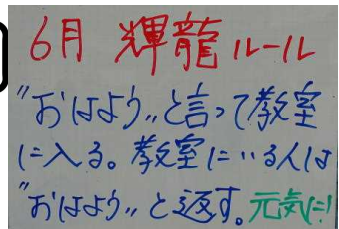 6月 輝龍ルール
"おはよう"と言って教室
に入る。教室にいる人は
"おはよう"と返す。元気に!